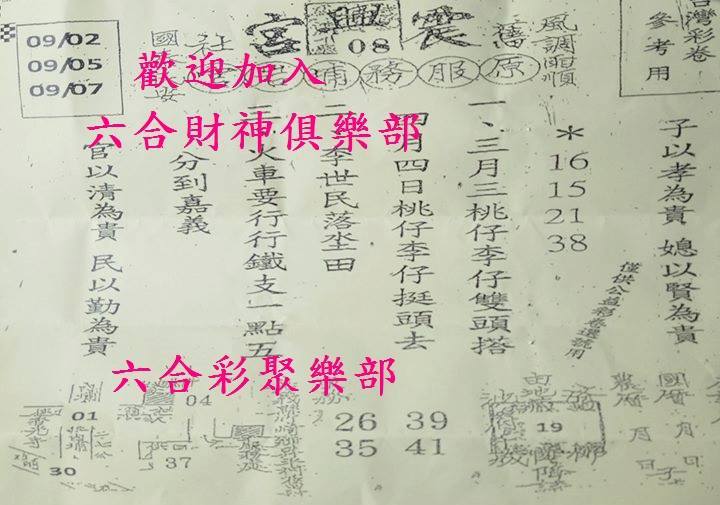 台灣彩卷
參考用
風調雨順
震興宮
08
舊原服務
社
09/02
09/05
09/07
歡迎加入
六合財神俱樂部
子以孝為貴 媳以賢為貴
僅供公益彩卷選號用
*
16
15
21
38
一、三月三桃仔李仔雙頭搭
四月四日桃仔李仔挺頭去
二、李世民落坐田
三、火車要行行鐵支一點五
分到嘉義
官以清為貴 民以勤為貴
六合彩聚樂部
國曆 月 日
農曆 月 日
19
39
41
26
35
04
37
01
30